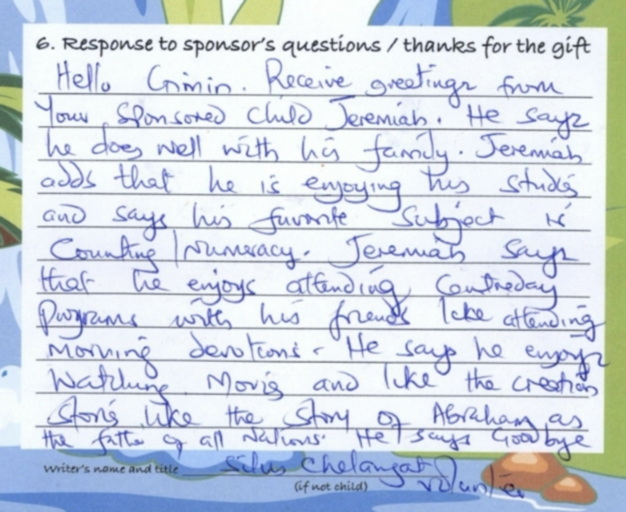 6. Response to sponsor's questions / thanks for the gift
Hello Crimin. Receive greetings from
Your Sponsored child Jeremiah. He says
he does well with his family. Jeremiah
adds that he is enjoying his studies
and says his favorite Subject is
Counting / Numeracy. Jeremiah says
that he enjoys attending Centreday
Programs with his friends like attending
Morning devotions. He says he enjoys
Watching Movies and like the creation
stories like the story of Abraham as
the father of all Nations. He says Goodbye
Writer's name and title Silus Chelangat Volunteer
(if not child)